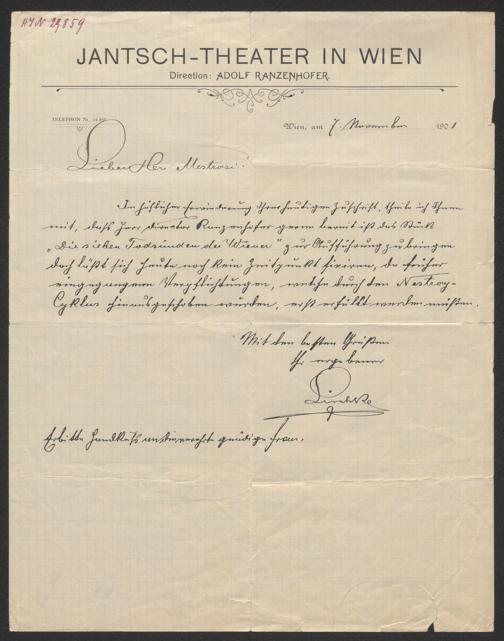 HIN 29,859
JANTSCH-THEATER IN WIEN
Direction: ADOLF RANZENHOFER.
TELEPHON Nr.
Wien, am 7. November 1901
Lieber Herr Mestrosi!
In höflicher Erwiederung Ihrer heutigen Zuschrift, theile ich Ihnen
mit, dass Herr Director Ranzenhofer gerne bereit ist das Stück
„Die sieben Todsünden der Wiener" zur Aufführung zu bringen
doch läßt sich heute noch kein Zeitpunkt fixiren, da früher
eingegangene Verpflichtungen, welche durch den Nestroy-
Cyklus hinausgeschoben wurden, erst erfüllt werden müßen.
Mit den besten Grüßen
Ihr ergebener
Erbitte Handkuß an die verehrte gnädige Frau.